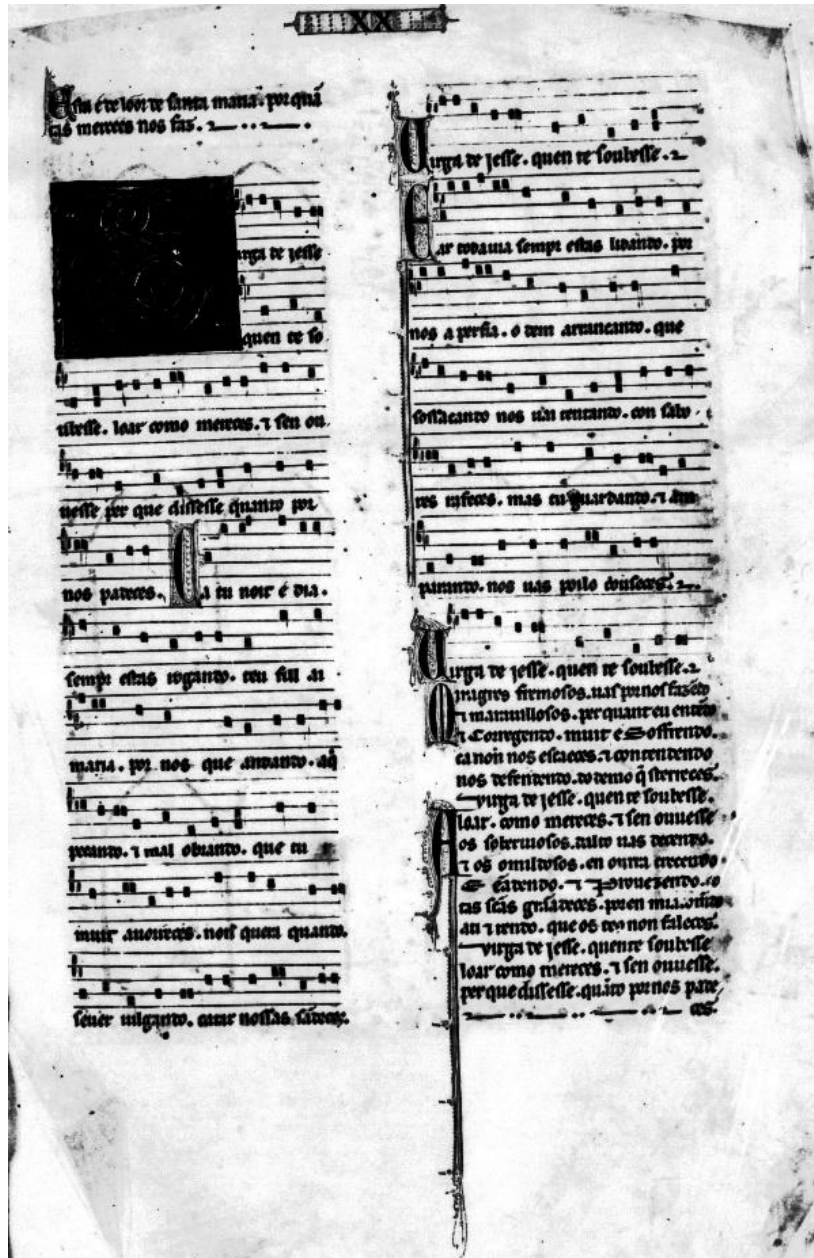 XX
Esta é de loor de santa maria. por quã
tas merçees nos faz.
irga de jesse
quen te so
ubesse. loar como mereces. ⁊ sen ou
uesse per que dissesse quanto por
nos padeces. Ca tu noit é dia.
sempr estas rogando. teu fill ai
maria. por nos que andando. aq̃
pecando. ⁊ mal obrando. que tu
muit auorreces. non quera quando
seuer iulgando. catar nossas sãdeces.
Uirga de jesse. quen te soubesse.
Ear todauia sempr estas lidando. por
nos a perfia. o dem arrancando. que
sossacando nos uai tentando. con sabo
res rafeces. mas tu guardando. ⁊ am
parando. nos uas poilo couseces.
Uirga de jesse. quen te soubesse.
Miragres fremosos. uas por nos fazẽdo
⁊ marauillosos. per quant eu entẽdo
⁊ Corregendo. muit é Soffrendo.
ca non nos escaeces. ⁊ contendendo
nos defendendo. do demo q̃ sterreces.
uirga de jesse. quen te soubesse.
loar. como mereces. ⁊ sen ouuesse
Aos soberuiosos. dalto uas decendo.
⁊ os omildosos. en onrra crecendo
E Eadendo. ⁊ Prouezendo.
tas scãs graadeces. poren
ati ⁊ rendo. que os teus non faleces.
uirga de jesse. quen te soubesse
loar como mereces. ⁊ sen ouuesse.
per que dissesse. quãto por nos pade
ces.